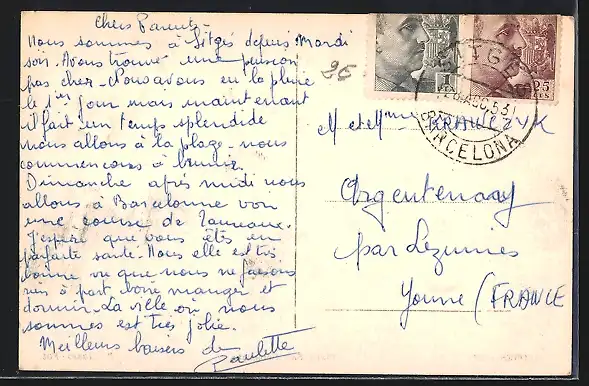 Chers Parents -
Nous sommes à Sitges depuis Mardi
soir. Avons trouvé une pension
pas cher. Nous avons eu la pluie
le 1er jour mais maintenant
il fait un temps splendide
nous allons à la plage. nous
commencons à brunir.
Dimanche après midi nous
allons à Barcelonne voir
une course de taureaux.
J'espère que vous êtes en
parfaite santé. Nous elle est très
bonne vu que nous ne faisons
rien à part boire manger et
dormir. La ville où nous
sommes est très jolie.
Meilleurs baisers de
Paulette
2E
1
25
CTS
SITGES
AGO. 53
BARCELONA
M et Mme KRAWCZYK
Argentenay
par Lezinnes
Yonne (FRANCE